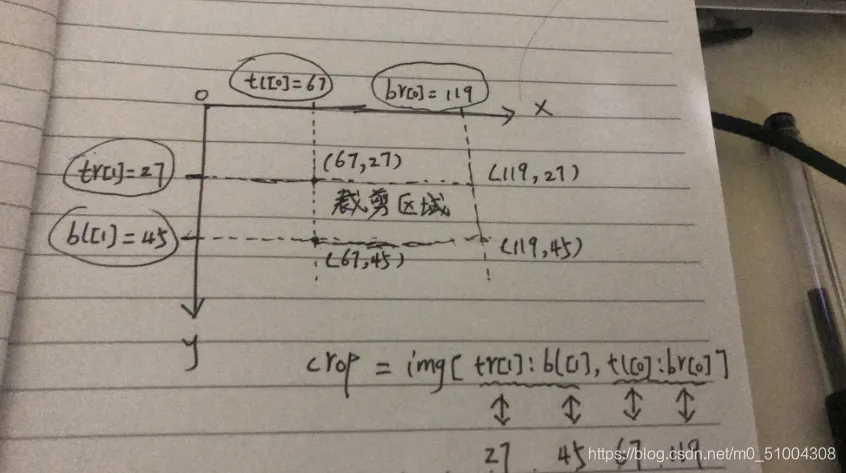 tl[0]=67
br[0]=119
0
x
tr[1]=27
(67,27)
(119,27)
裁剪区域
bl[1]=45
(67,45)
(119,45)
y
crop = img[tr[1]:bl[1],tl[0]:br[0]]
27 45 67 119
https://blog.csdn.net/m0_51004308